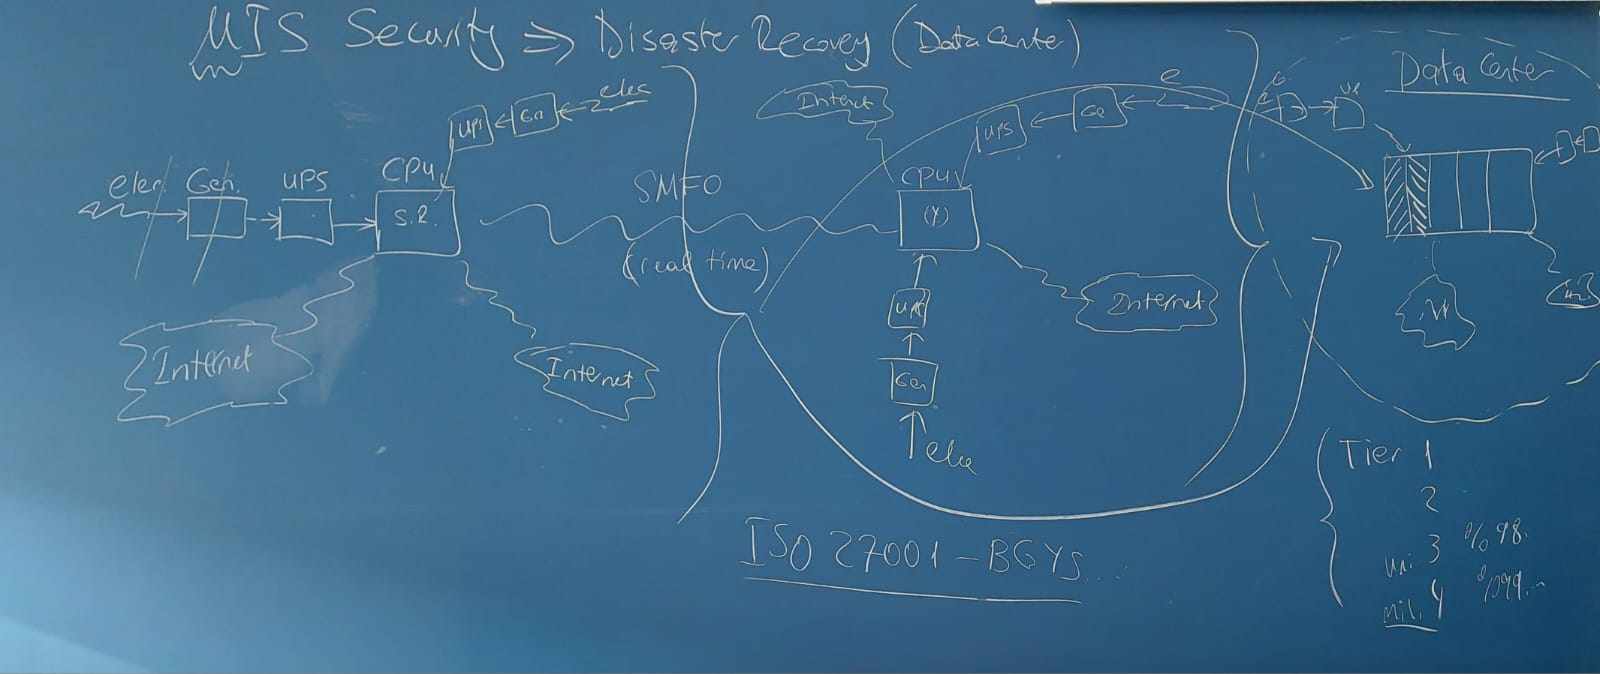 MIS Security ⇒ Disaster Recovery (Data Center)
elec
UPS
Gen
CPU
S.R.
elec.
Gen.
UPS
Internet
Internet
SMFO
(real time)
Internet
e
UPS
Ge
CPU
(Y)
Internet
UPS
Gen
elec
Data Center
ISO 27001-BGYS...
Tier 1
2
3 % 98.
mil. 4 %99...